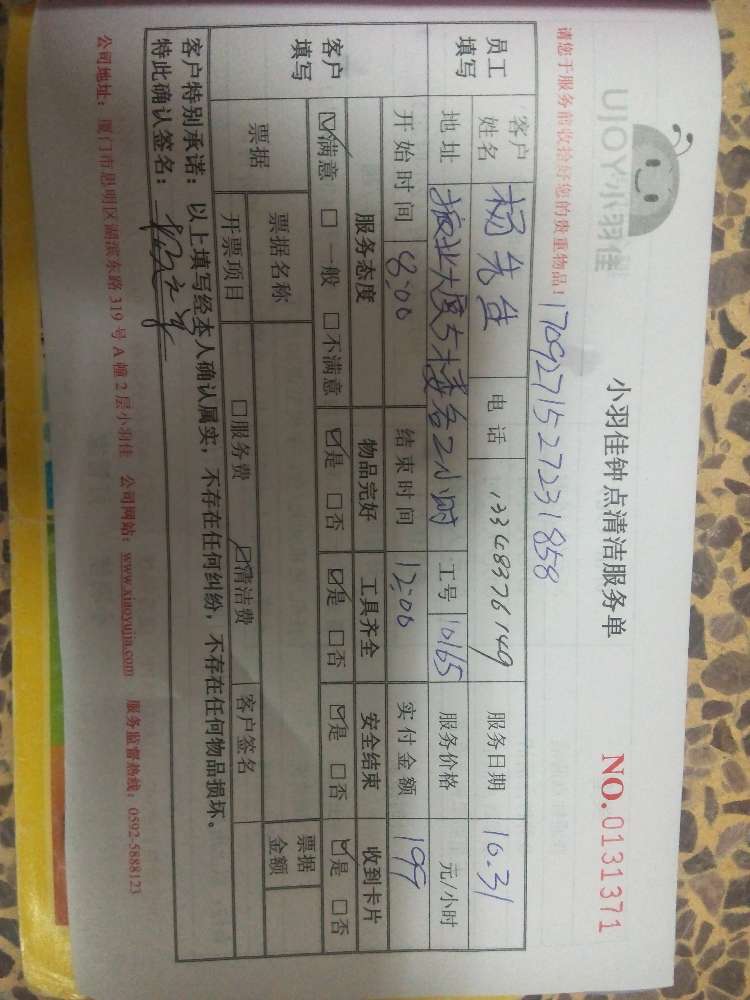 UJOY小羽佳
小羽佳钟点清洁服务单
NO.0131371
请您于服务前收拾好您的贵重物品!
17092715272231858
员工填写
客户姓名 杨先生 电话 13348376149 服务日期 10.31
地址 振业大厦5楼各2小时 工号 10165 服务价格 元/小时
开始时间 8:00 结束时间 12:00 实付金额 199
客户填写
服务态度 物品完好 工具齐全 安全结束 收到卡片
☑满意 □一般 □不满意 ☑是 □否 ☑是 □否 ☑是 □否 ☑是 □否
票据 票据名称 票据金额
开票项目 □服务费 ☑清洁费 客户签名
客户特别承诺:以上填写经本人确认属实,不存在任何纠纷,不存在任何物品损坏。
特此确认签名:
公司地址:厦门市思明区湖滨东路319号A幢2层小羽佳 公司网站:www.xiaoyujia.com 服务监督热线:0592-5888123